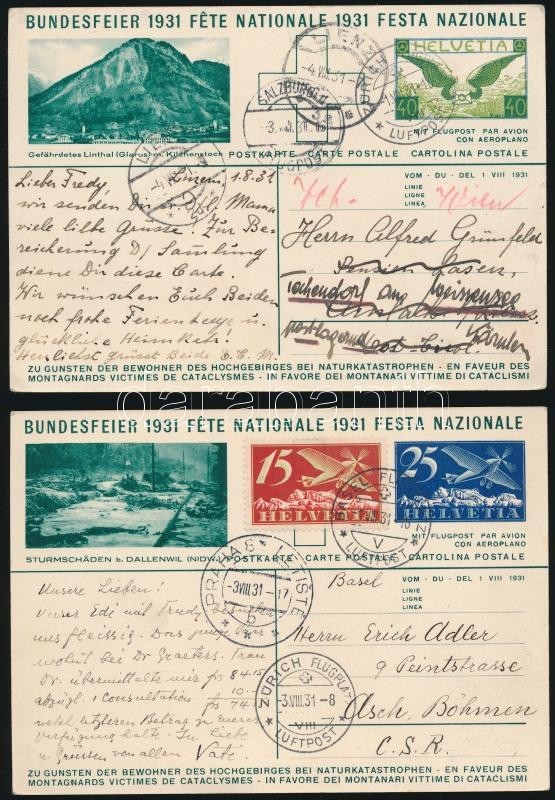 BUNDESFEIER 1931 FÊTE NATIONALE 1931 FESTA NAZIONALE
HELVETIA
40 40
SALZBURG
LUFTPOST
MIT FLUGPOST PAR AVION
CON AEROPLANO
Gefährdetes Linthal (Glarus) m. Kilchenstock
POSTKARTE - CARTE POSTALE - CARTOLINA POSTALE
VOM - DU - DEL 1 VIII 1931
LINIE
LIGNE
LINEA
Wien
Luzern 1.8.31
Lieber Fredy,
wir senden Dir u. Mama
viele liebe Grüsse. Zur Be-
reicherung D/ Samlung
diene Dir diese Carte.
Wir wünschen Euch Beiden
noch frohe Ferientage u.
glückliche Heimkehr!
Herzlichst grüsst Beide
Herrn Alfred Grünfeld
Pension
Techendorf am Weissensee
postlagernd Kärnten
Ost-Tirol
ZU GUNSTEN DER BEWOHNER DES HOCHGEBIRGES BEI NATURKATASTROPHEN - EN FAVEUR DES
MONTAGNARDS VICTIMES DE CATACLYSMES - IN FAVORE DEI MONTANARI VITTIME DI CATACLISMI
darabanth
BUNDESFEIER 1931 FÊTE NATIONALE 1931 FESTA NAZIONALE
15 HELVETIA
25 HELVETIA
BASEL
LUFTPOST
MIT FLUGPOST PAR AVION
CON AEROPLANO
STURMSCHÄDEN b. DALLENWIL (NIDW.)
POSTKARTE - CARTE POSTALE - CARTOLINA POSTALE
VOM - DU - DEL 1 VIII 1931
LINIE
LIGNE
LINEA
PRAHA 82 LETIŠTE
-3VIII.31 -17
b
ZÜRICH FLUGPLATZ
-3.VIII.31-8
VIII
LUFTPOST
Basel
Unsere Lieben!
Unser Edi mit Trudy
uns fleissig. Das junge Paar
wohnt bei Dr Graeters. Frau
Dr. übermittelte mir frs 84.15
abzügl. 1 Consultation 10.-
frs 74.
welch letzteren Betrag zu eurer
Verfügung halte. In Liebe
u. Grüssen von allen Vati
Herrn Erich Adler
9 Peintstrasse
Asch, Böhmen
C.S.R.
ZU GUNSTEN DER BEWOHNER DES HOCHGEBIRGES BEI NATURKATASTROPHEN - EN FAVEUR DES
MONTAGNARDS VICTIMES DE CATACLYSMES - IN FAVORE DEI MONTANARI VITTIME DI CATACLISMI